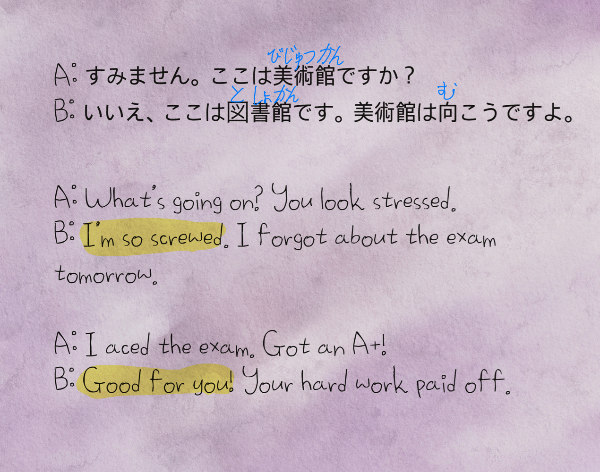 びじゅつかん
A: すみません。ここは美術館ですか？
としょかん む
B: いいえ、ここは図書館です。美術館は向こうですよ。
A: What's going on? You look stressed.
B: I'm so screwed. I forgot about the exam
tomorrow.
A: I aced the exam. Got an A+!
B: Good for you! Your hard work paid off.